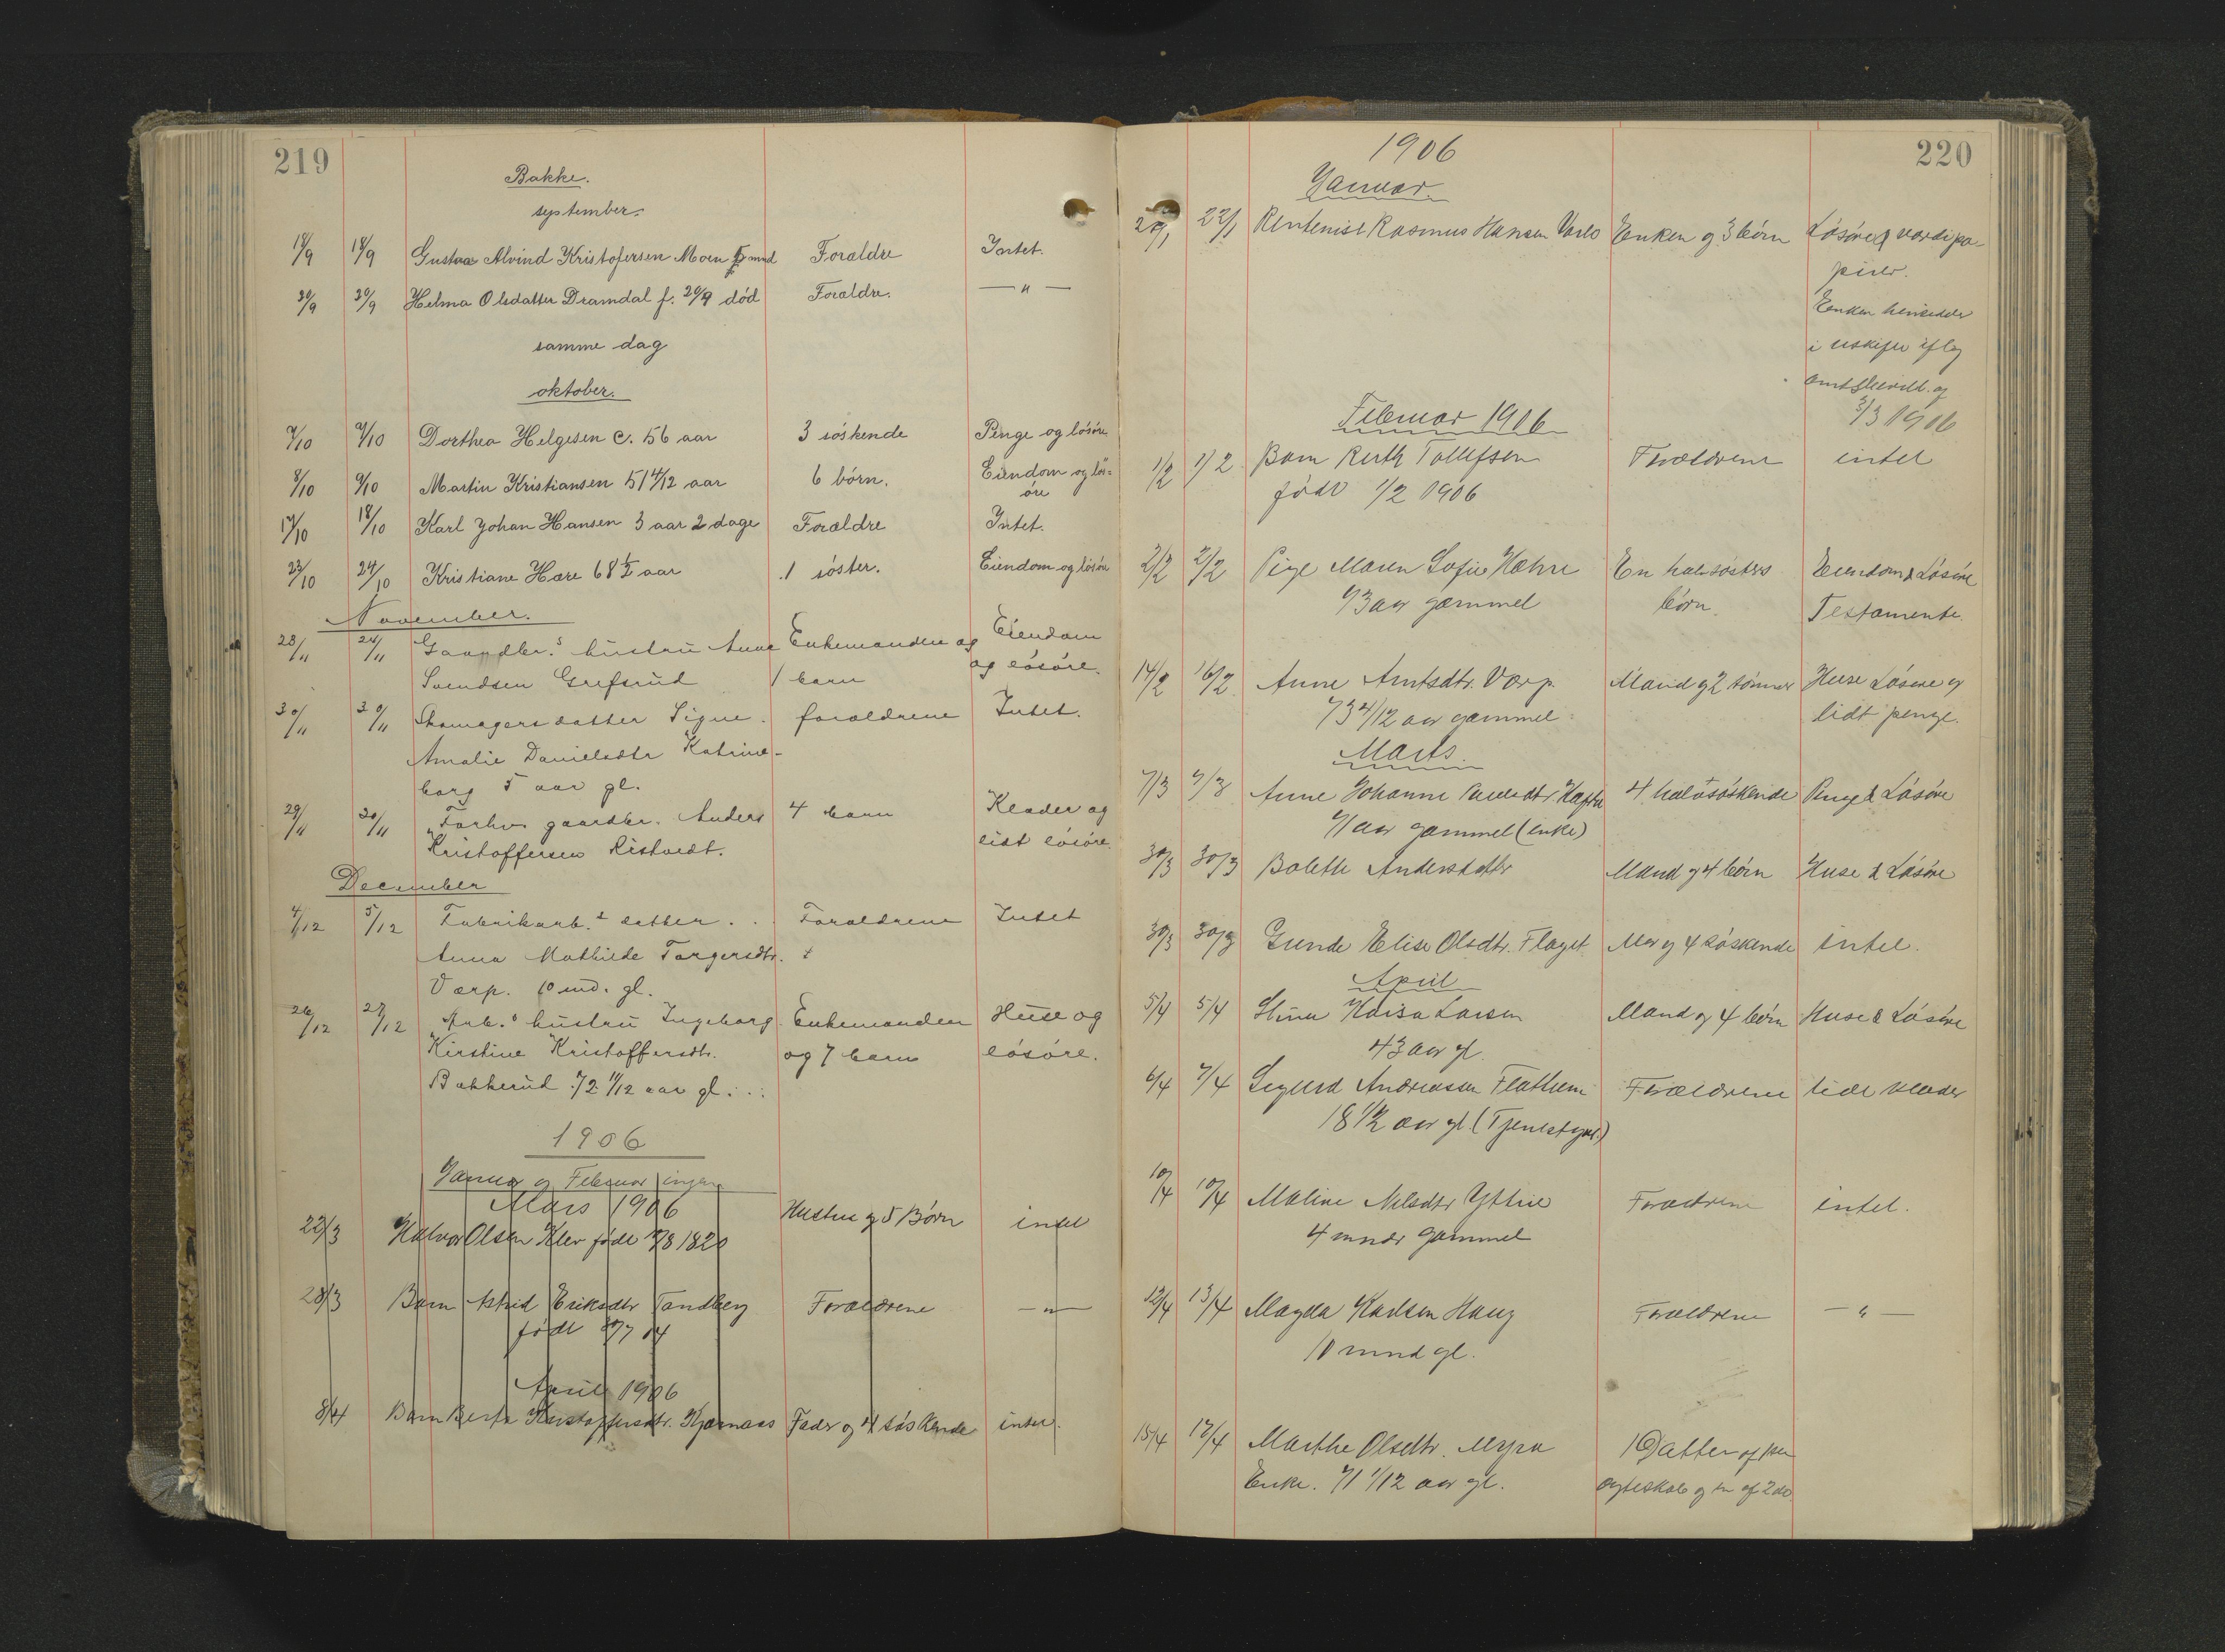 219
Bakke.
september.
18/9 18/9 Gustav Alvind Kristofersen Moen 5 mnd Forældre Intet.
20/9 20/9 Helma Olsdatter Dramdal f. 20/9 død Forældre. — " —
samme dag
oktober.
9/10 Dorthea Helgesen e. 56 aar 3 söskende Penge og lösöre
8/10 9/10 Martin Kristiansen 51 4/12 aar 6 börn. Eiendom og lös-
öre
17/10 18/10 Karl Johan Hansen 3 aar 2 dage Forældre Intet.
23/10 24/10 Kristiane Hære 68 1/2 aar 1 söster. Eiendom og lösöre
November.
23/11 24/11 Gaardbr.s hustru Anne Enkemanden og Eiendom
Svendsen Grefsrud 1 barn og lösöre.
30/11 30/11 Skomagers datter Signe forældrene Intet.
Amalie Danielsdtr Katrine-
borg 5 aar gl.
29/11 30/11 Forhv. gaardbr. Anders 4 barn Klæder og
Kristoffersen Ristvedt. lidt lösöre.
December
4/12 5/12 Fabrikarb.s datter Forældrene Intet
Anna Mathilde Torgersdtr.
Værp. 10 md. gl.
26/12 27/12 Arb.s hustru Ingeborg Enkemanden Huse og
Kirstine Kristoffersdtr. og 7 barn lösöre.
Bakkerud 72 11/12 aar gl.
1906
Januar og Februar ingen
Mars 1906
22/3 Halvor Olsen Klev født 1820 Hustru og 5 Børn intet
28/3 Barn Astrid Eriksdtr Tandberg Forældrene — " —
født 04
April 1906
8/4 Barn Berta Kristoffersdtr. Kjærnaas Fader og 4 søskende intet.
220
1906
Januar
22/1 Rentenist Rasmus Hansen Enken og 3 börn Lösöre & værdipa-
pirer.
Enken hensidder
i uskifte iflg
og
3/3 1906
Februar 1906
1/2 1/2 Barn Ruth Tollefsen Forældrene intet
født 1/2 1906
2/2 2/2 Pige Maren Sofie Hæhre En halvsösters Eiendom & Lösöre
73 aar gammel börn. Testamente.
14/2 16/2 Anne Amtsdtr. Værp. Mand og 2 sönner Huse Lösöre og
73 4/12 aar gammel lidt penge.
Marts.
7/3 7/3 Anne Johanne 4 halvsöskende Penge & Lösöre
71 aar gammel (enke)
30/3 30/3 Bolette Andersdatter Mand og 4 börn Huse & Lösöre
30/3 30/3 Gunda Elise Olsdtr. Flaget Mor og 4 söskende intet.
April
5/4 5/4 Stina Kaisa Larsen Mand og 4 börn Huse & Lösöre
43 aar gl.
6/4 7/4 Sigurd Andreassen Flathem Forældrene lidt klæder
18 1/2 aar gl. (Tjenestgut.)
10/4 10/4 Maline Nilsdtr Yttrie Forældrene intet.
4 mndr gammel
12/4 13/4 Magda Karlsen Haug Forældrene — " —
10 mnd gl.
15/4 17/4 Marthe Olsdtr. Myra 1 Datter af
Enke. 71 1/12 aar gl. ægteskab og en af 2 do.